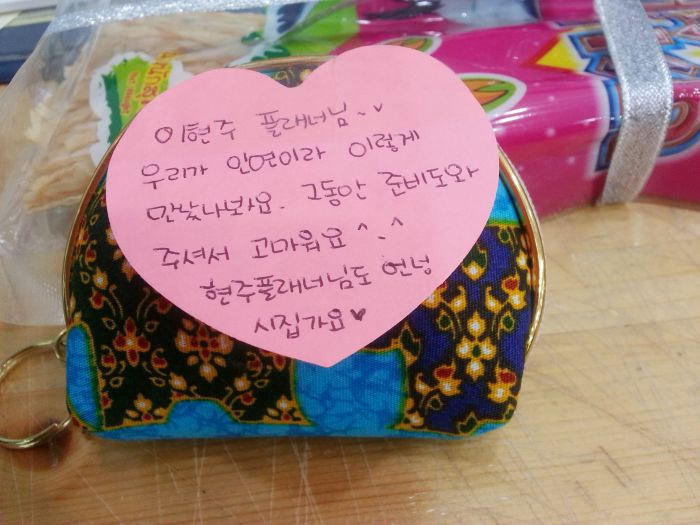 이현주 플래너님~^
우리가 인연이라 이렇게
만났나보아요. 그동안 준비도와
주셔서 고마워요 ^.^
현주플래너님도 언넝
시집가요♥